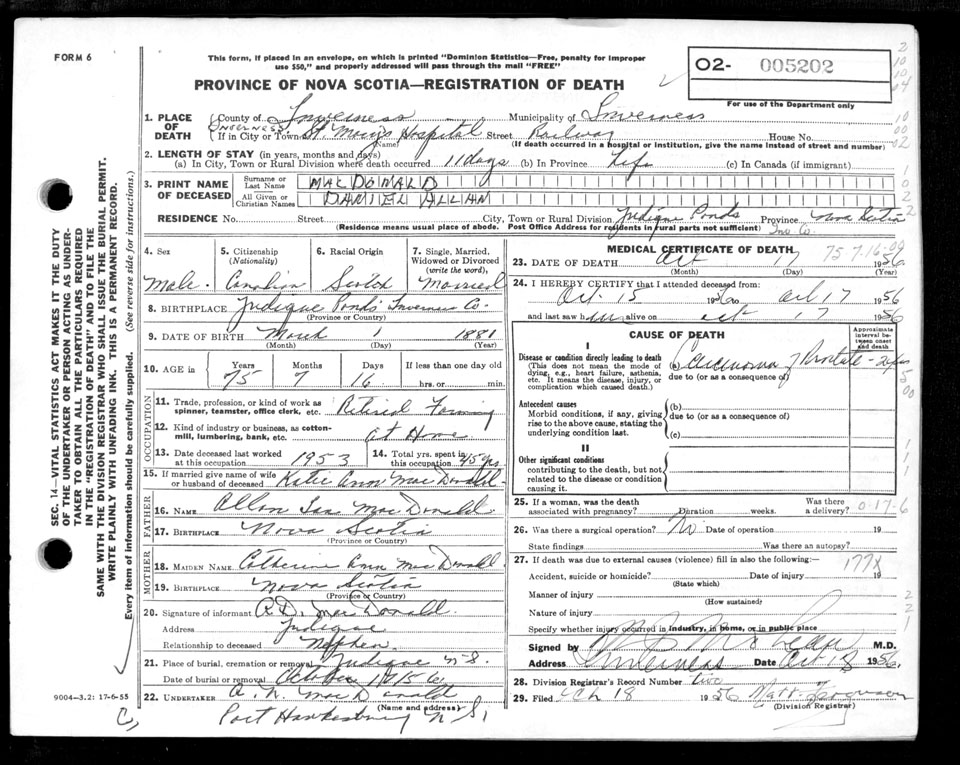 FORM 6
This form, if placed in an envelope, on which is printed "Dominion Statistics—Free, penalty for improper
use $50," and properly addressed will pass through the mail "FREE"
PROVINCE OF NOVA SCOTIA—REGISTRATION OF DEATH
O2- 005202
For use of the Department only
SEC. 14—VITAL STATISTICS ACT MAKES IT THE DUTY
OF THE UNDERTAKER OR PERSON ACTING AS UNDER-
TAKER TO OBTAIN ALL THE PARTICULARS REQUIRED
IN THE "REGISTRATION OF DEATH" AND TO FILE THE
SAME WITH THE DIVISION REGISTRAR WHO SHALL ISSUE THE BURIAL PERMIT.
WRITE PLAINLY WITH UNFADING INK. THIS IS A PERMANENT RECORD.
Every item of information should be carefully supplied. (See reverse side for instructions.)
1. PLACE OF DEATH
County of Inverness Municipality of Inverness
If in City or Town INVERNESS St. Mary's Hospital Street Railway House No.
(Name) (If death occurred in a hospital or institution, give the name instead of street and number)
2. LENGTH OF STAY (in years, months and days)
(a) In City, Town or Rural Division where death occurred 11 days (b) In Province Life (c) In Canada (if immigrant)
3. PRINT NAME OF DECEASED
Surname or Last Name MACDONALD
All Given or Christian Names DANIEL ALLAN
RESIDENCE No. Street City, Town or Rural Division Judique Ponds Province Nova Scotia
(Residence means usual place of abode. Post Office Address for residents in rural parts not sufficient) Inv. Co.
4. Sex 5. Citizenship (Nationality) 6. Racial Origin 7. Single, Married, Widowed or Divorced (write the word),
Male Canadian Scotch Married
8. BIRTHPLACE Judique Ponds Inverness Co.
(Province or Country)
9. DATE OF BIRTH March 1 1881
(Month) (Day) (Year)
10. AGE in Years Months Days If less than one day old
75 7 16 hrs. or min.
OCCUPATION
11. Trade, profession, or kind of work as spinner, teamster, office clerk, etc. Retired Farming
12. Kind of industry or business, as cotton-mill, lumbering, bank, etc. at Home
13. Date deceased last worked at this occupation 1953
14. Total yrs. spent in this occupation 45 yrs
15. If married give name of wife or husband of deceased Katie Ann MacDonald
FATHER
16. NAME Allan MacDonald
17. BIRTHPLACE Nova Scotia
(Province or Country)
MOTHER
18. MAIDEN NAME Catherine Ann MacDonald
19. BIRTHPLACE Nova Scotia
(Province or Country)
20. Signature of informant R.D. MacDonald
Address Judique
Relationship to deceased Nephew
21. Place of burial, cremation or removal Judique N.S.
Date of burial or removal October
22. UNDERTAKER A. N. MacDonald
(Name and address)
Port Hawkesbury N.S.
9004—3.2: 17-6-55
MEDICAL CERTIFICATE OF DEATH
75 7-16-00
23. DATE OF DEATH Oct 17 1956
(Month) (Day) (Year)
24. I HEREBY CERTIFY that I attended deceased from:
Oct. 15 1956 to Oct 17 1956
and last saw him alive on Oct 17 1956
CAUSE OF DEATH
Approximate interval between onset and death
I
Disease or condition directly leading to death
(This does not mean the mode of dying, e.g., heart failure, asthenia, etc. It means the disease, injury, or complication which caused death.)
(a) Carcinoma of Prostate - 2 yrs
due to (or as a consequence of)
Antecedent causes
Morbid conditions, if any, giving rise to the above cause, stating the underlying condition last.
(b)
due to (or as a consequence of)
(c)
II
Other significant conditions
contributing to the death, but not related to the disease or condition causing it.
25. If a woman, was the death associated with pregnancy? Duration weeks. Was there a delivery?
0-17-6
26. Was there a surgical operation? No Date of operation 19
State findings Was there an autopsy?
27. If death was due to external causes (violence) fill in also the following:
177X
Accident, suicide or homicide? Date of injury 19
(State which)
Manner of injury
(How sustained)
Nature of injury
Specify whether injury occurred in industry, in home, or in public place
Signed by M.D.
Address Inverness Date Oct 18 1956.
28. Division Registrar's Record Number two
29. Filed Oct 18 1956 Matt. Ferguson
(Division Registrar)